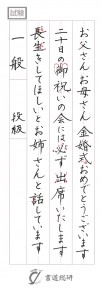 試験
お父さんお母さん金婚式おめでとうございます
二十日の御祝いの会には必ず出席いたします
長生きをしてほしいとお姉さんと話しています
一般 段級
書道総研